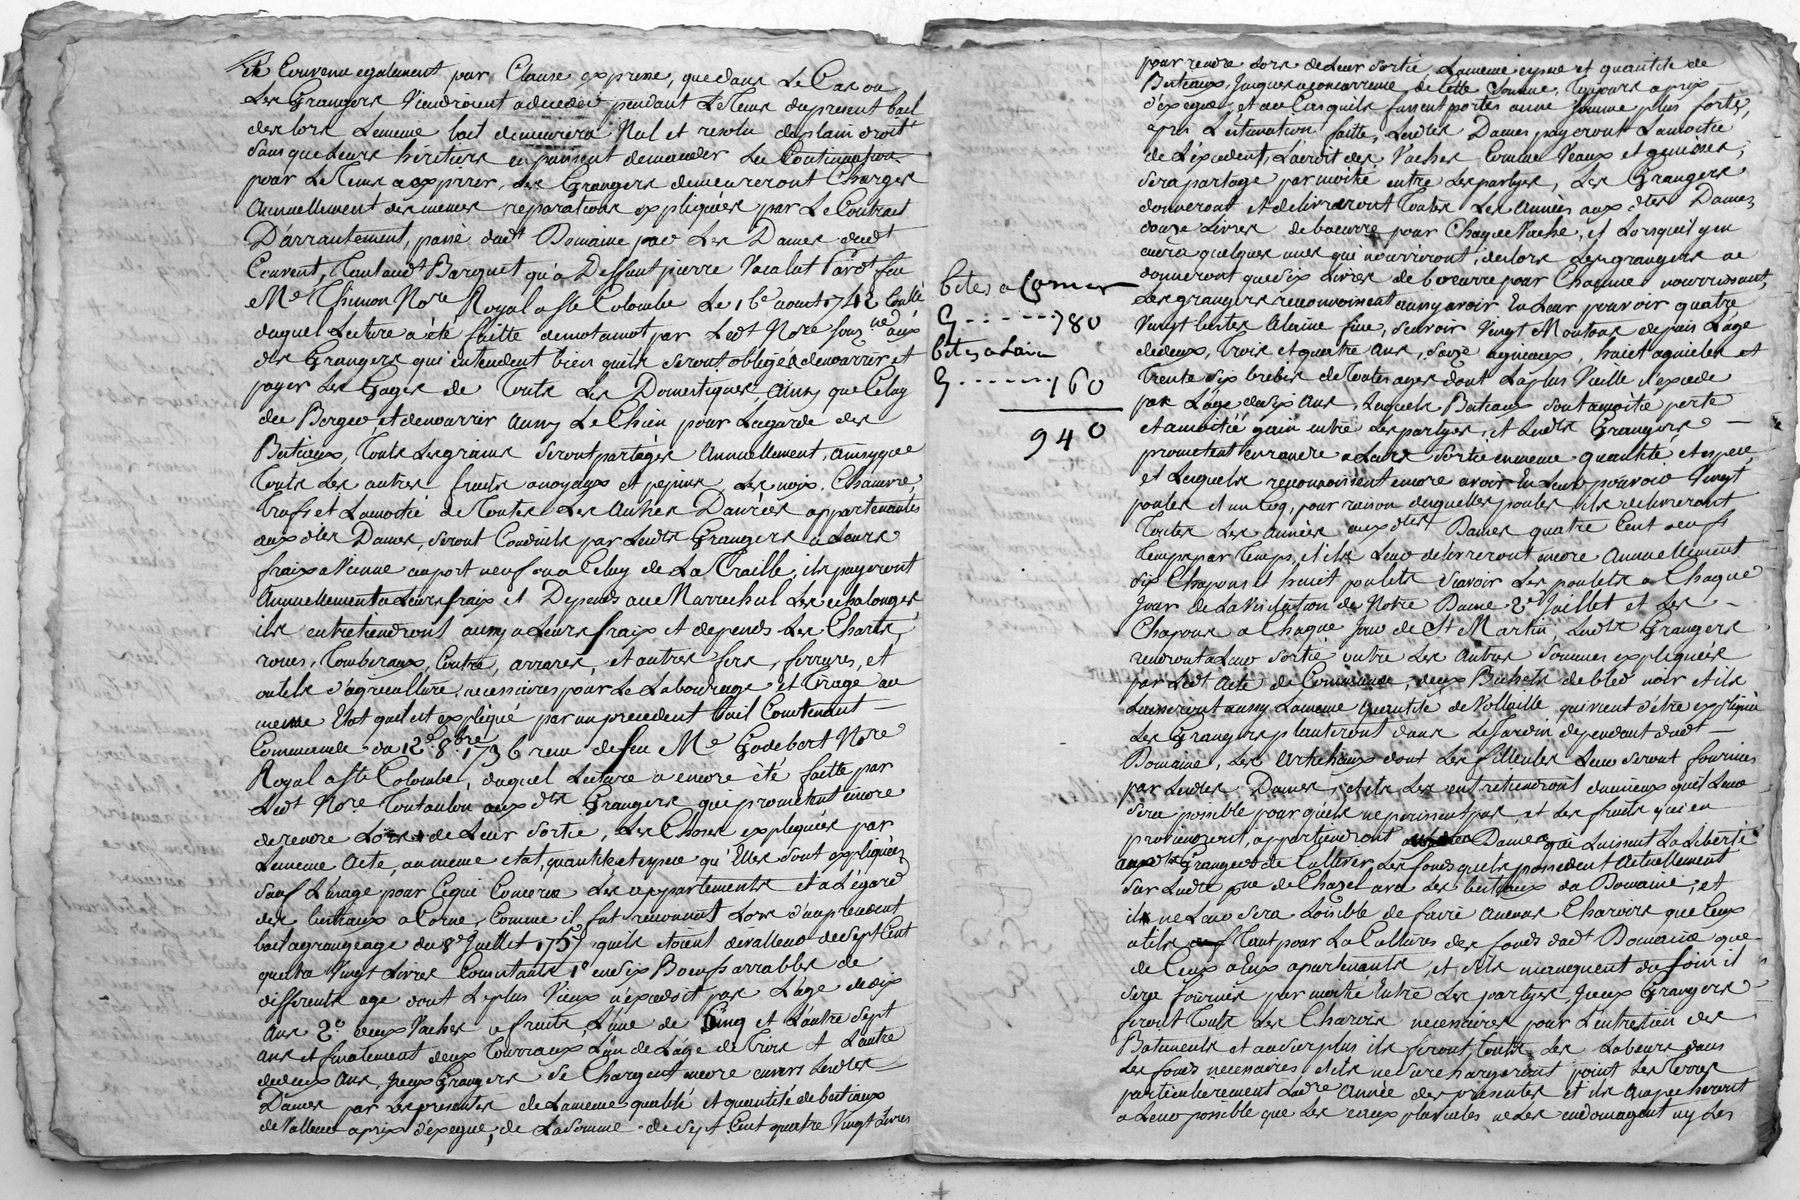 Eté Convenu egalement par Clause expresse, que dans Le Cas ou
Les Grangers Viendroient a deceder pendant Le Tems du present bail
des lors Le meme bail demeurera Nul et resolu de plain droit
Sans que Leurs héritiers en puissent demander La Continuation
pour Le Tems a expirer, Les Grangers demeureront Chargés
Annuellement des memes reparations expliquées par Le Contract
D'arrantement, passé dudt Domaine par Les Dames dudt
Couvent, Tant audt Barquet qu'a Deffunt pierre Vacalut Pardt feu
Me Thimon Nore Royal a Ste Colombe Le 16e aout 1742
duquel Lecture a été faitte de mot a mot par Ledt Nore Souzné aux
dts Grangers qui entendent bien quils Seront obligés de nourrir et
payer Les Gages de Touts Les Domestiques, Ainsy que Celuy
du Berger, et de nourrir aussy Le Chien pour La garde des
Bestiaux, Touts Les grains Seront partagés Annuellement, ainsy que
Touts Les autres fruits a noyaux et pepins, Les noix, Chanvre,
Trufs et La moitié de Toutes Les Autres Danrées appartenantes
aux dtes Dames, Seront Conduits par Lesdts Grangers a Leurs
fraix a Vienne au port neuf ou a Celuy de La Traille, ils payeront
Annuellement a Leurs fraix et Depends au Marrechal Les echalonges
ils entretiendront aussy a Leurs fraix et depends Les Chars,
roues, Tombereaux, Coutre, arrares, et autres fers, ferrures, et
outils d'agriculture, nécéssaires pour Le Labourage et Tirage au
meme Etat quil est expliqué par un precedent bail Contenant
Commande du 12e 8bre 1736 reçu de feu Me Godebort Nore
Royal a Ste Colombe, duquel Lecture a encore été faitte par
Ledt Nore Toutaulon aux dts Grangers qui promettent encore
de rendre Lors de Leur Sortie, Les Choses expliquées par
Le meme Acte, au même etat, quantité et espece qu'Elles Sont expliquées
Sauf L'usage pour Ce qui Concerne Les appartements et a L'égard
des bestiaux a Corne, Comme il fut reconnut Lors d'un precedent
bail a grangeage du 8e Juillet 1757 quils étoient de valleur de Sept Cent
quatre Vingt Livres Consistants 1o en Six Boeufs arrables de
differents age dont Le plus Vieux n'excedoit pas L'age de dix
Ans 2o deux Vaches a fruits, L'une de Cinq et L'autre Sept
ans et finalement deux Tourraux L'un de L'age de Trois et L'autre
de deux ans, Yceux Grangers Se Chargent encore envers Lesdtes
Dames par Les presentes de La meme qualité et quantité de bestiaux
de Valleur a prix d'exegue, de La Somme de Sept Cent quatre Vingt Livres
betes a Corner
S.......780
betes a Laine
S.......160
940
pour rendre Lors de Leur Sortie La meme espece et quantité de
Bestiaux, Jusques a concurrence de Cette Somme, Toujours a prix
d'exegue, et au Cas quils fussent portés a une Somme plus forte,
après L'estimation faitte, Lesdtes Dames payeront La moitié
de L'excedent, L'acroit des Vaches Comme Veaux et genisses,
Sera partagé par moitié entre Les partyes, Les Grangers
donneront et delivreront Toutes Les Années aux dtes Dames
douze Livres de boeurre pour Chaque Vache, et Lorsquil y en
aura quelques unes qui nourriront, des lors Les grangers ne
donneront que Six Livres de boeurre pour Chacune nourrissant,
Les grangers reconnoissent aussy avoir En Leur pouvoir quatre
Vingt bettes a Laine fine, Scavoir Vingt Moutons depuis L'age
de deux, Trois et quatre ans, Seize agneaux, huict agnieles et
Trente Six brebis de Touts ages dont La plus Vieille n'excede
pas L'age de dix Ans, Lesquels Bestiaux Sont a moitié perte
et a moitié gain entre Les partyes, et Lesdts Grangers
promettent en rendre a Leurs Sortie en meme quantité et espece
et Lesquels reconnoissent encore avoir En Leurs pouvoir Vingt
poules et un Coq, pour raison desquelles poules ils delivreront
Toutes Les Années aux dtes Dames quatre Cent oeufs
Temps par Temps, et ils Leur delivreront encore Annuellement
Six Chapons et huict poulets Scavoir Les poulets a Chaque
Jour de La Visitation de Notre Dame 2e Juillet et Les
Chapons a Chaque Jour de St Martin, Lesdts Grangers
rendront a Leur Sortie outre Les Autres Sommes expliquées
par Ledt Acte de Commande, deux Bichets de bled noir et ils
Laisseront aussy La meme quantité de Vollaille qui vient d'être expliquée
Les Grangers planteront dans Le Jardin dependant dudt
Domaine, Les Artichaux dont Les filleules Leur Seront fournies
par Lesdtes Dames, et ils Les entretiendront du mieux quil Leur
Sera possible pour qu'ils ne perissent pas et Les fruits qui en
proviendront, appartiendront Dames qui Laissent La Liberté
aux dts Grangers de Cultiver Les fonds quils possedent Actuellement
Sur Ladte psse de Chazel avec Les bestiaux du Domaine, et
ils ne Leur Sera Loisible de faire aucuns Charois que Ceux
utils Tant pour La Cultures des fonds dudt Domaine que
de Ceux a Eux apartenants, et S'ils manquent du foin il
Sera fournis par moitié Entre Les partyes, Yceux Grangers
feront Touts Les Charois necessaires pour L'entretien des
Batiments et au Surplus ils feront Touts Les Labeurs dans
Les fonds necessaires et ils ne Surchargeront point Les Terres
particulierement La dre Année des presentes et ils empecheront
a Leur possible que Les eaux pluviales ne Les endomagent ny Les